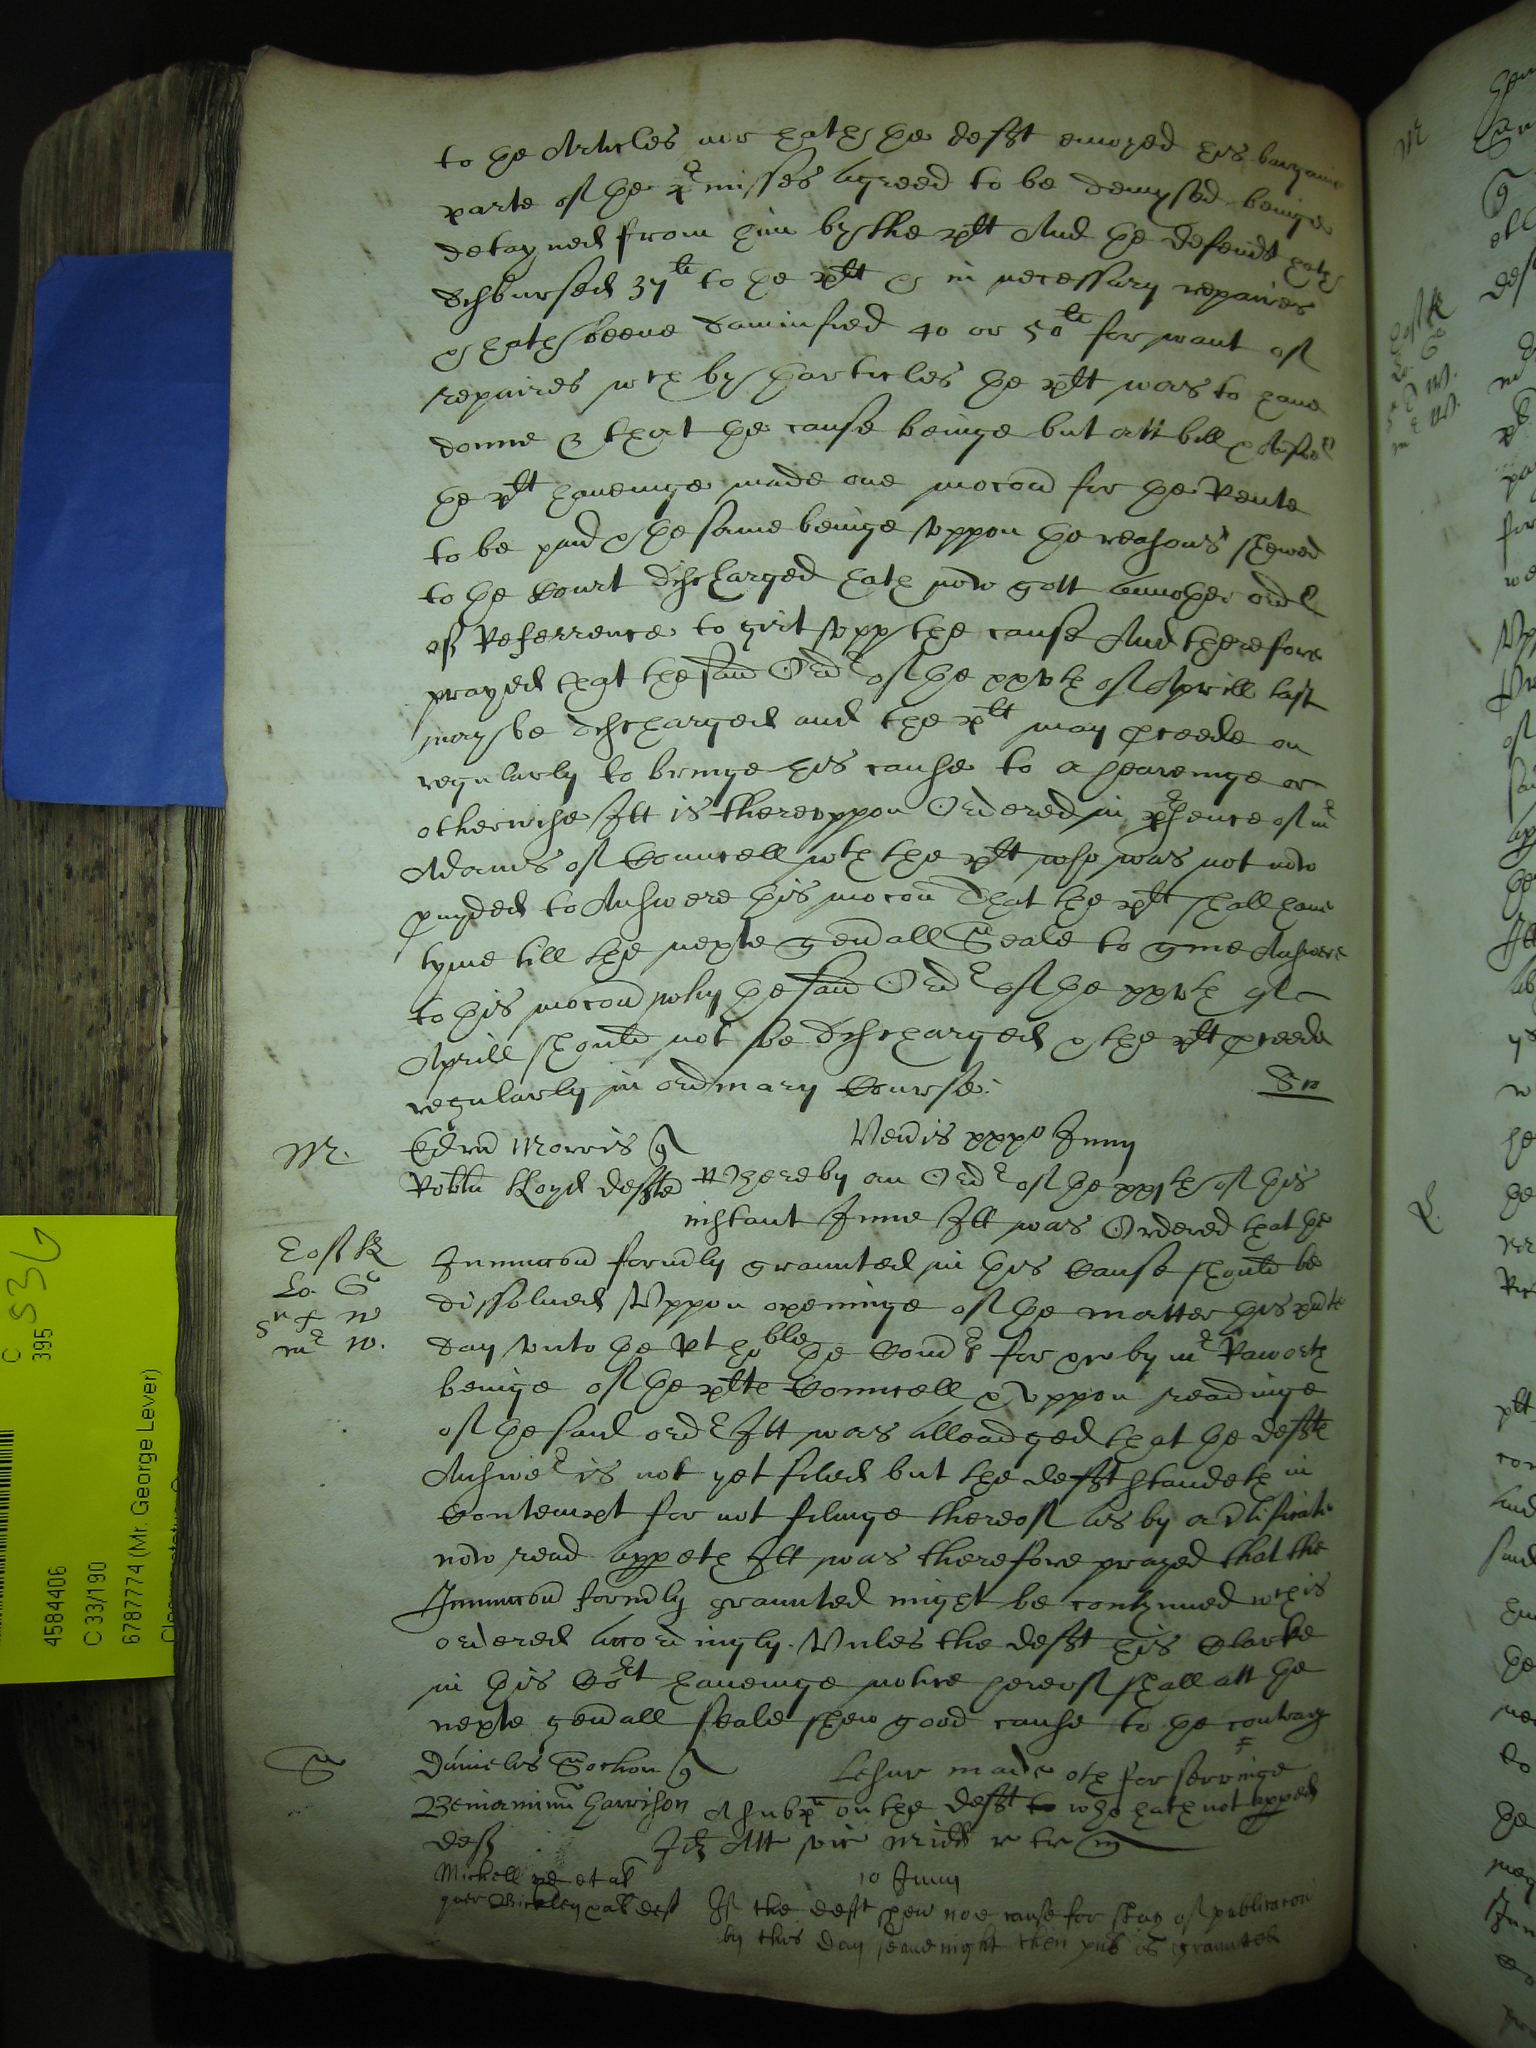 to the Articles nor hath the deft enioyed his bargaine
parte of the pmisses agreed to be demysed beinge
detayned from him by the plt And the defendt hath
disbursed 37li to the plt & in necessary repaires
& hath beene damnified 40 or 50li for want of
repaires wch by tharticles the plt was to haue
donne & that the cause beinge but att bill &
the plt haueinge made one mocon for the Rente
to be paid & the same beinge vppon the reasons shewed
to the Court discharged hath now gott another ordr
of Referrence to the cause And therefore
prayed that the said Ordr of the xxvth of Aprill last
may be discharged and the plt may pceede on
regularly to bringe his cause to a heareinge or
otherwise Itt is therevppon Ordered in psence of mr
Adams of Councell wth the plt who was not now
pvyded to Answere this mocon That the plt shall haue
tyme till the nexte genall Seale to giue Answere
to this mocon why the said Ordr of the xxvth of
Aprill should not be discharged & the plt pceede
regularly in ordinary Course.
Mr. Edrd Morris q Venis xxxo Junij
Robtu lloyd deftes Whereby an Ordr of the xxvth of this
instant June Itt was Ordered that the
E of K Iniunccon formly graunted in this Cause should be
Lo. G dissolued Vppon openinge of the matter this pnte
Sr f W day vnto the Rt hoble the Comrs for by mr Raworth
mr W. beinge of the pltes Councell & vppon readinge
of the said ordr Itt was alleadged that the deftes
Answer is not yet filed but the deft standeth in
Contempt for not filinge thereof as by a Ctificate
now read appeth Itt was therefore prayed that the
Iniunccon formly graunted might be contynued wch is
ordered accordingly. Vnles the deft his Clarke
in this Cort haueinge notice hereof shall att the
nexte genall seale shew good cause to the contrary
S Daniel Sochon q Lesur made oth for servinge
Beniaminu Harrison A subp on the deft to who hath not apped
deft Id Att vic Midd r tr m
Mickell et al 10 Junij
quer Bickley al deft If the deft shew noe cause for stay of publicacon
by this day seauenight then pub is graunted
4584406
C 33/190
6787774 (Mr. George Lever)
C
395
S36